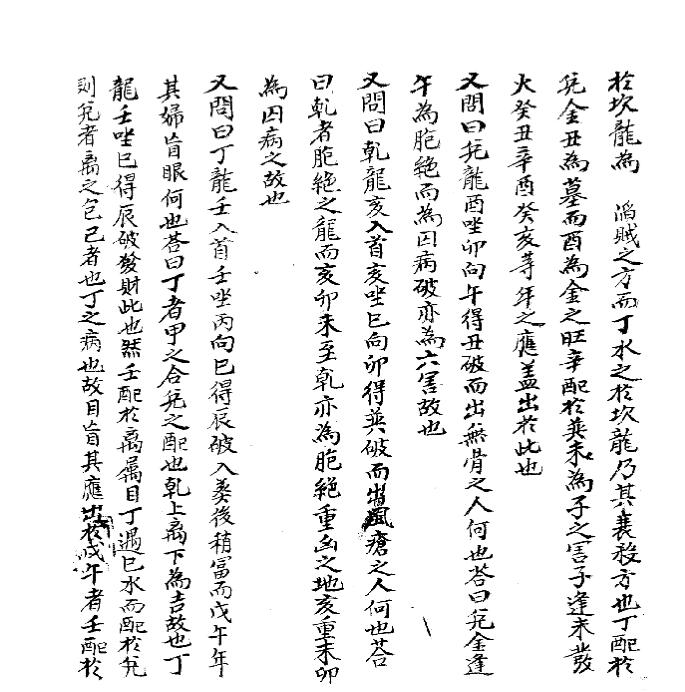 於坎龍為 滔賊之方而丁水之於坎龍乃其衰殺方也丁配於
兌金丑為墓而酉為金之旺辛配於巽未為子之害子逢未發
火癸丑辛酉癸亥等年之應盖出於此也
又問曰兌龍酉坐卯向午得丑破而出無骨之人何也荅曰兌金逢
午為胞絶而為囚病破亦為六害故也
又問曰乹龍亥入首亥坐巳向卯得巽破而出風瘡之人何也荅
曰乹者胞絶之龍而亥卯未至乹亦為胞絶重凶之地亥重未卯
為囚病之故也
又問曰丁龍壬入首壬坐丙向巳得辰破入葬後稍富而戊午年
其婦盲眼何也荅曰丁者甲之合兌之配也乹上离下為吉故也丁
龍壬坐巳得辰破發財此也然壬配於离屬目丁遇巳水而配於兌
則兌者离之 己者也丁之病也故目盲其應出於戊午者壬配於